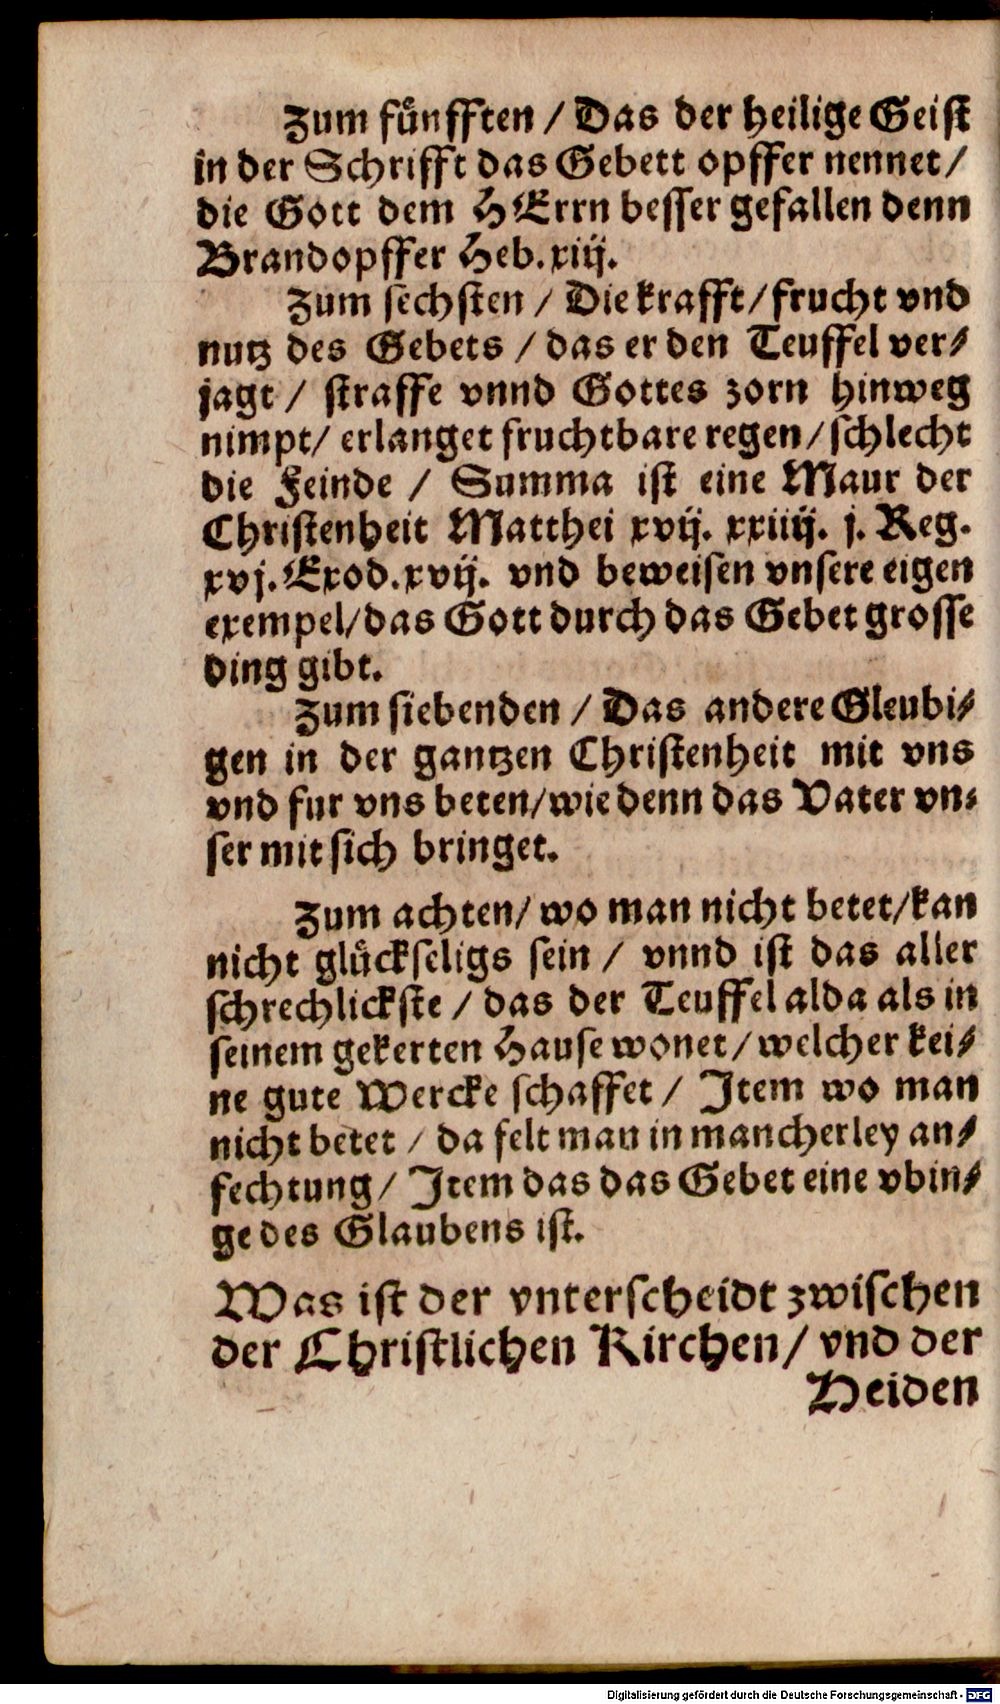 Zum fuͤnfften / Das der heilige Geist
in der Schrifft das Gebett opffer nennet /
die Gott dem HErrn besser gefallen denn
Brandopffer Heb. xiij.
Zum sechsten / Die krafft / frucht vnd
nutz des Gebets / das er den Teuffel ver⸗
jagt / straffe vnnd Gottes zorn hinweg
nimpt / erlanget fruchtbare regen / schlecht
die Feinde / Summa ist eine Maur der
Christenheit Matthei xvij. xxiiij. j. Reg.
xvj. Exod. xvij. vnd beweisen vnsere eigen
exempel / das Gott durch das Gebet grosse
ding gibt.
Zum siebenden / Das andere Gleubi⸗
gen in der gantzen Christenheit mit vns
vnd fur vns beten / wie denn das Vater vn⸗
ser mit sich bringet.
Zum achten / wo man nicht betet / kan
nicht gluͤckseligs sein / vnnd ist das aller
schrechlickste / das der Teuffel alda als in
seinem gekerten Hause wonet / welcher kei⸗
ne gute Wercke schaffet / Item wo man
nicht betet / da felt man in mancherley an⸗
fechtung / Item das das Gebet eine vbin⸗
ge des Glaubens ist.
Was ist der vnterscheidt zwischen
der Christlichen Kirchen / vnd der
Heiden
Digitalisierung gefördert durch die Deutsche Forschungsgemeinschaft - DFG